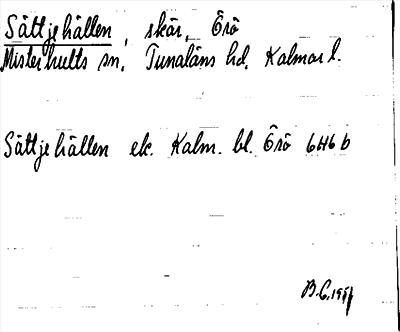 Sättjehällen, skär, Örö
Misterhults sn, Tunaläns hd, Kalmar l.
Sättjehällen ek. Kalm. bl. Örö 6H6b
B.C.